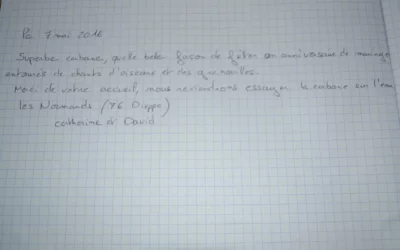 7 mai 2016
Superbe cabane, quelle belle façon de fêter son anniversaire de mariage
entourés de chants d'oiseaux et des grenouilles.
Merci de votre accueil, nous reviendrons essayer la cabane sur l'eau
les Normands (76 Dieppe)
Catherine et David